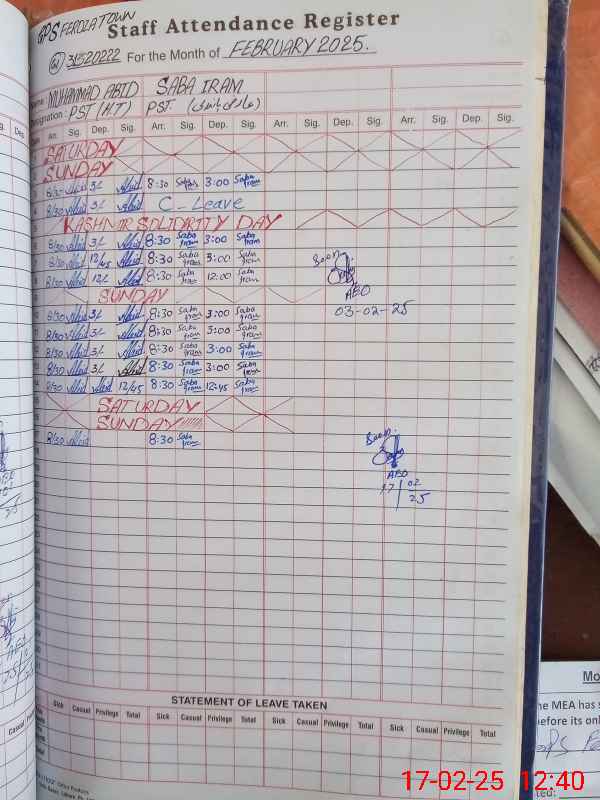 GPS FEROZA TOWN
Staff Attendance Register
For the Month of FEBRUARY 2025.
MUHAMMAD ABID SABA IRAM
Designation: PST (H.T) PST
Arr. Sig. Dep. Sig. Arr. Sig. Dep. Sig. Arr. Sig. Dep. Sig. Arr. Sig. Dep. Sig.
SATURDAY
SUNDAY
8/30 Abid 3/ Abid 8:30 Saba Iram 3:00 Saba Iram
8/30 Abid 3/ Abid C - Leave
KASHMIR SOLIDARITY DAY
8/30 Abid 3/ Abid 8:30 Saba Iram 3:00 Saba Iram
8/30 Abid 12/45 Abid 8:30 Saba Iram 3:00 Saba Iram
8/30 Abid 12/ Abid 8:30 Saba Iram 12:00 Saba Iram
Seen.
AEO
03-02-25
SUNDAY
8/30 Abid 3/ Abid 8:30 Saba Iram 3:00 Saba Iram
8/30 Abid 3/ Abid 8:30 Saba Iram 3:00 Saba Iram
8/30 Abid 3/ Abid 8:30 Saba Iram 3:00 Saba Iram
8/30 Abid 3/ Abid 8:30 Saba Iram 3:00 Saba Iram
8/30 Abid Abid 12/45 8:30 Saba Iram 12:45 Saba Iram
SATURDAY
SUNDAY
8/30 Abid 8:30 Saba Iram
Seen.
AEO
17/02
25
STATEMENT OF LEAVE TAKEN
Sick Casual Privilege Total Sick Casual Privilege Total Sick Casual Privilege Total Sick Casual Privilege Total
Mo
he MEA has s
before its onl
17-02-25 12:40